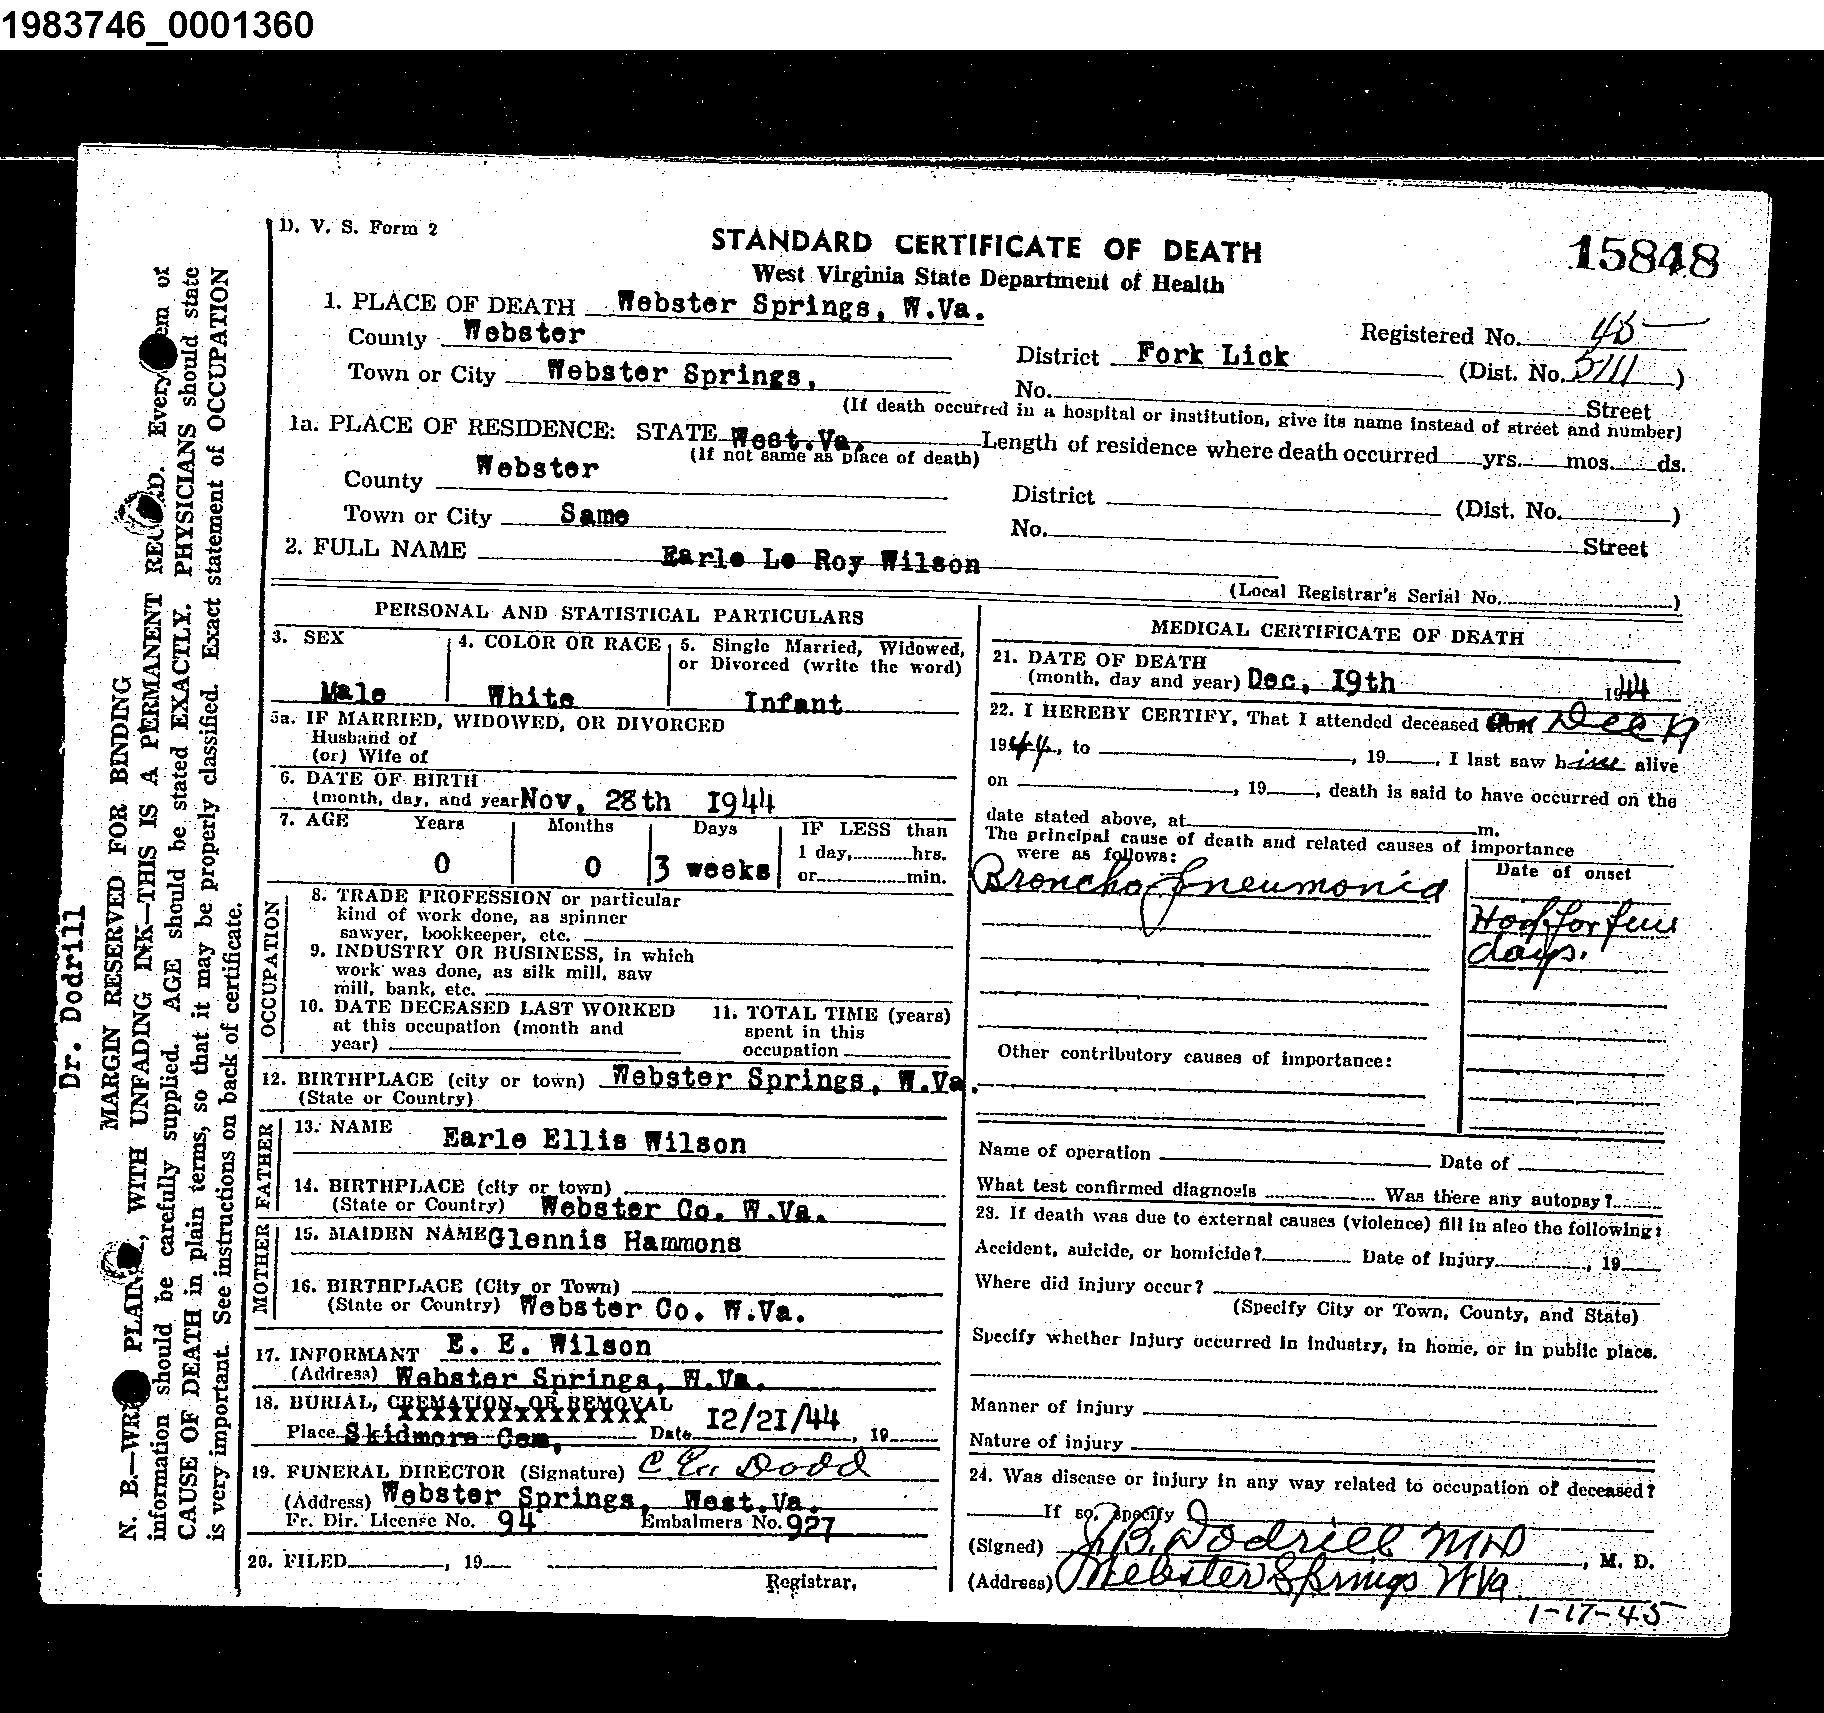 1983746_0001360
D. V. S. Form 2
STANDARD CERTIFICATE OF DEATH
15848
West Virginia State Department of Health
1. PLACE OF DEATH Webster Springs, W.Va.
Registered No.
County Webster
District Fork Lick
(Dist. No. 5711)
Town or City Webster Springs,
No. Street
(If death occurred in a hospital or institution, give its name instead of street and number)
1a. PLACE OF RESIDENCE: STATE West.Va. Length of residence where death occurred yrs. mos. ds.
(If not same as place of death)
County Webster
District (Dist. No. )
Town or City Same
No. Street
2. FULL NAME Earle Le Roy Wilson
(Local Registrar's Serial No. )
PERSONAL AND STATISTICAL PARTICULARS
3. SEX
Male
4. COLOR OR RACE
White
5. Single Married, Widowed,
or Divorced (write the word)
Infant
5a. IF MARRIED, WIDOWED, OR DIVORCED
Husband of
(or) Wife of
6. DATE OF BIRTH
(month, day, and year Nov, 28th 1944
7. AGE Years Months Days IF LESS than
1 day, hrs.
0 0 3 weeks or min.
OCCUPATION
8. TRADE PROFESSION or particular
kind of work done, as spinner
sawyer, bookkeeper, etc.
9. INDUSTRY OR BUSINESS, in which
work was done, as silk mill, saw
mill, bank, etc.
10. DATE DECEASED LAST WORKED
at this occupation (month and
year)
11. TOTAL TIME (years)
spent in this
occupation
12. BIRTHPLACE (city or town) Webster Springs, W.Va.
(State or Country)
FATHER
13. NAME Earle Ellis Wilson
14. BIRTHPLACE (city or town)
(State or Country) Webster Co. W.Va.
MOTHER
15. MAIDEN NAME Glennis Hammons
16. BIRTHPLACE (City or Town)
(State or Country) Webster Co. W.Va.
17. INFORMANT E. E. Wilson
(Address) Webster Springs, W.Va.
18. BURIAL, CREMATION, OR REMOVAL
XXXXXXXXXXXXXXX
Place Skidmore Cem, Date 12/21/44, 19
19. FUNERAL DIRECTOR (Signature) Dodd
(Address) Webster Springs, West.Va.
Fr. Dir. License No. 94 Embalmers No. 927
20. FILED , 19
Registrar,
MEDICAL CERTIFICATE OF DEATH
21. DATE OF DEATH
(month, day and year) Dec, 19th 1944
22. I HEREBY CERTIFY, That I attended deceased Dec 19
1944, to , 19 , I last saw him alive
on , 19 , death is said to have occurred on the
date stated above, at m.
The principal cause of death and related causes of importance
were as follows:
Date of onset
Broncho Pneumonia
for few
days.
Other contributory causes of importance:
Name of operation Date of
What test confirmed diagnosis Was there any autopsy?
23. If death was due to external causes (violence) fill in also the following:
Accident, suicide, or homicide? Date of Injury , 19
Where did injury occur?
(Specify City or Town, County, and State)
Specify whether injury occurred in industry, in home, or in public place.
Manner of injury
Nature of injury
24. Was disease or injury in any way related to occupation of deceased?
If so, specify
(Signed) J B. Dodrill MD, M. D.
(Address) Webster Springs W Va
1-17-45
Dr. Dodrill
MARGIN RESERVED FOR BINDING
N. B.—WRITE PLAINLY, WITH UNFADING INK—THIS IS A PERMANENT RECORD. Every item of
information should be carefully supplied. AGE should be stated EXACTLY. PHYSICIANS should state
CAUSE OF DEATH in plain terms, so that it may be properly classified. Exact statement of OCCUPATION
is very important. See instructions on back of certificate.